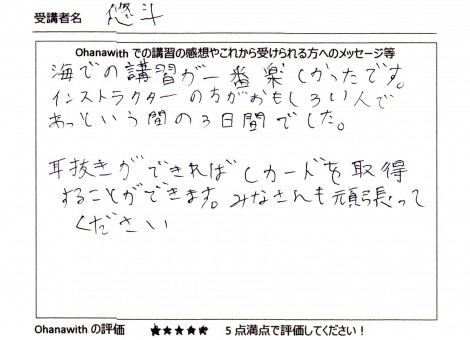 受講者名 悠斗
Ohanawith での講習の感想やこれから受けられる方へのメッセージ等
海での講習が一番楽しかったです。
インストラクターの方がおもしろい人で
あっという間の3日間でした。
耳抜きができればCカードを取得
することができます。みなさんも頑張って
ください
Ohanawith の評価 ★★★★★ 5点満点で評価してください！